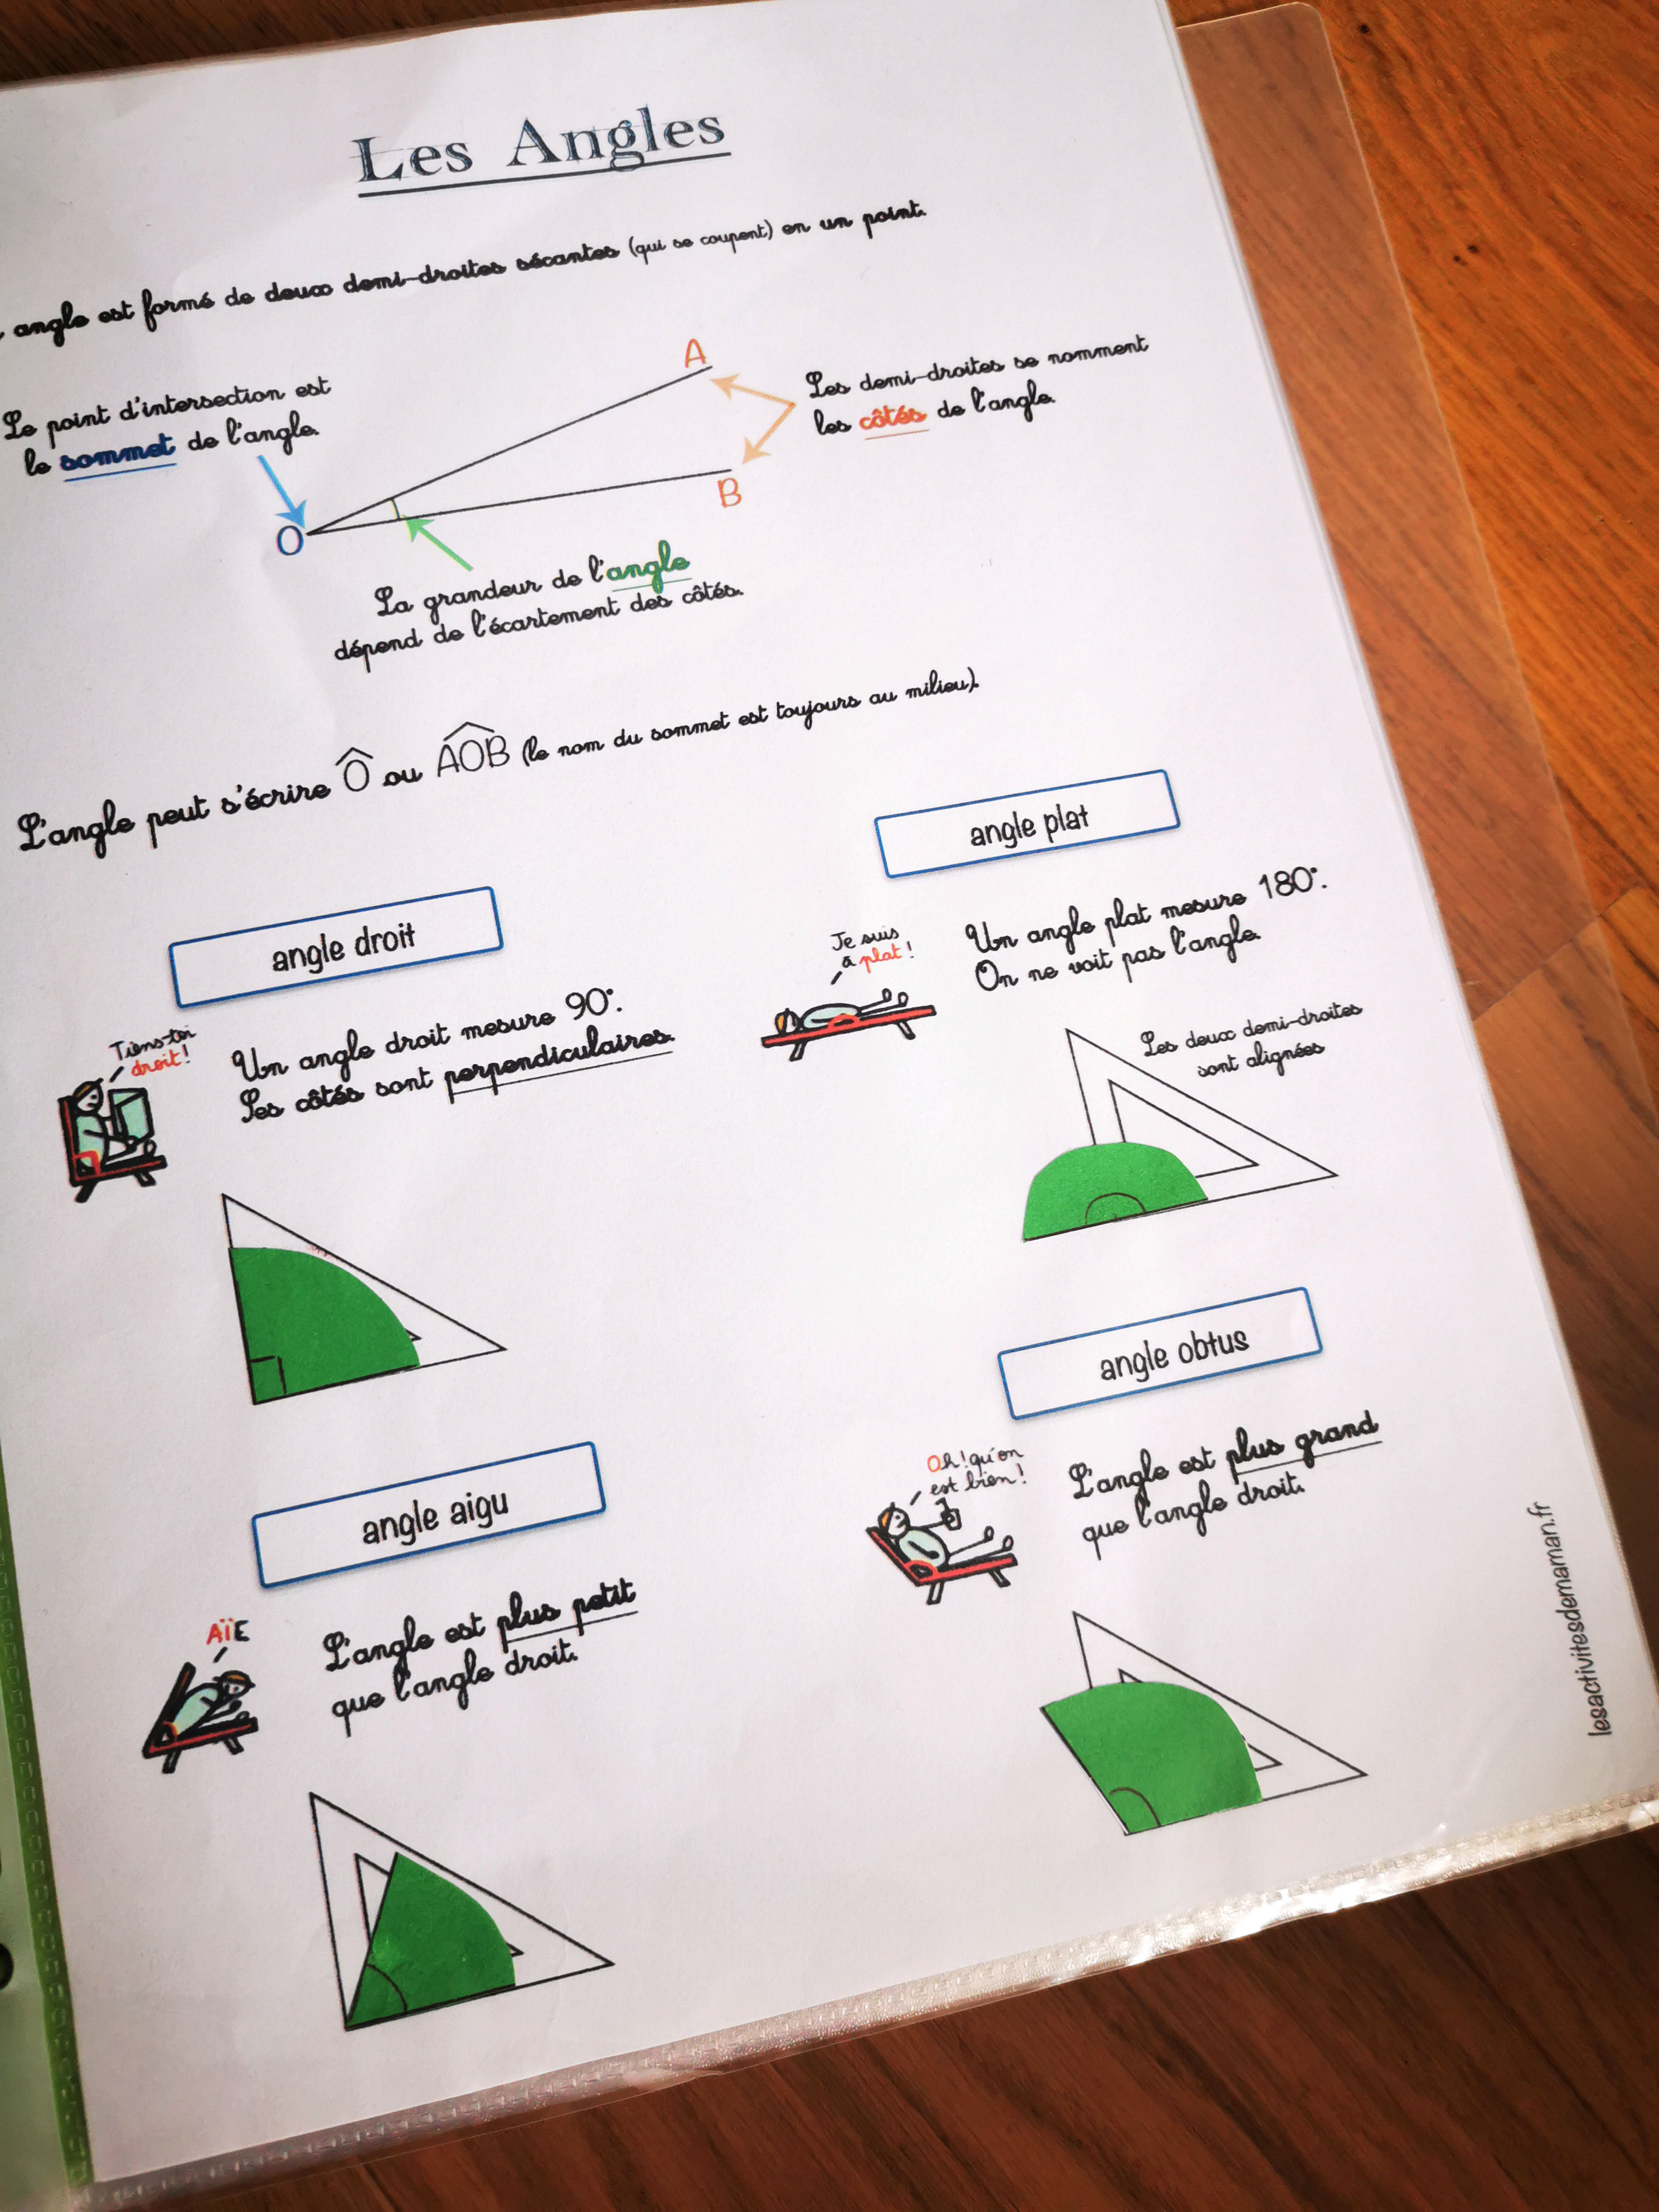 Les Angles
angle est formé de deux demi-droites sécantes (qui se coupent) en un point.
Le point d'intersection est
le sommet de l'angle.
A
Les demi-droites se nomment
les côtés de l'angle.
B
O
La grandeur de l'angle
dépend de l'écartement des côtés.
L'angle peut s'écrire Ô ou AOB (le nom du sommet est toujours au milieu).
angle droit
Tiens-toi
droit!
Un angle droit mesure 90°.
Ses côtés sont perpendiculaires.
angle plat
Je suis
à plat!
Un angle plat mesure 180°.
On ne voit pas l'angle.
Les deux demi-droites
sont alignées
angle aigu
AÏE
L'angle est plus petit
que l'angle droit.
angle obtus
Oh! qu'on
est bien!
L'angle est plus grand
que l'angle droit.
lesactivitesdemaman.fr